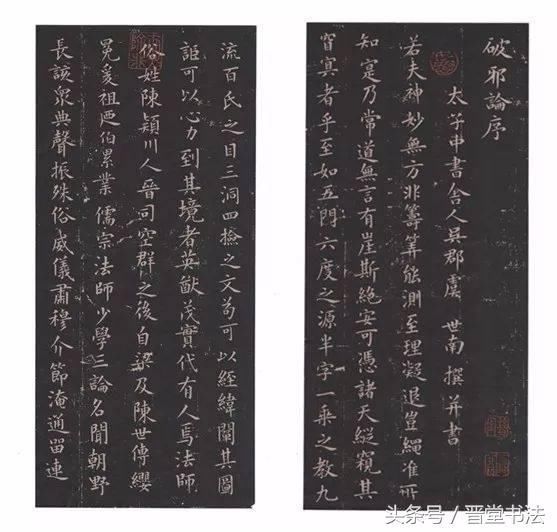 破邪論序
太子中書舍人吳郡虞世南撰并書
若夫神妙無方非籌筭能測至理凝退豈繩准所
知寔乃常道無言有崖斯絕安可憑諸天縱窺其
窅冥者乎至如五門六度之源半字一乘之教九
流百氏之目三洞四撿之文苟可以經緯闡其圖
詎可以心力到其境者英猷茂實代有人焉法師
俗姓陳潁川人晉司空群之後自梁及陳世傳纓
冕爰祖及伯累業儒宗法師少學三論名聞朝野
長該眾典聲振殊俗威儀肅穆介節淹通留連
头条号／晋堂书法